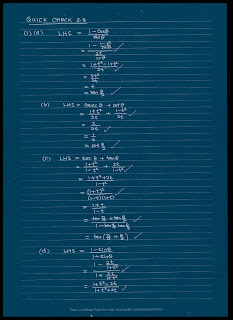 QUICK CHECK 2.8
(1) (a) LHS = 1-cosθ / sinθ
= 1 - 1-t²/1+t² / 2t/1+t² ✓
= 1+t²-1+t² / 2t ✓
= 2t²/2t
= t
= tan θ/2 ✓
(b) LHS = cosec θ + cot θ
= 1+t²/2t + 1-t²/2t ✓
= 2/2t ✓
= 1/t
= cot θ/2 ✓
(c) LHS = sec θ + tan θ
= 1+t²/1-t² + 2t/1-t² ✓
= 1+t²+2t / 1-t²
= (1+t)² / (1-t)(1+t) ✓
= 1+t / 1-t
= tan π/4 + tan θ/2 / 1 - tan π/4 tan θ/2 ✓
= tan (π/4 + θ/2) ✓
(d) LHS = 1-sinθ / 1+sinθ
= 1 - 2t/1+t² / 1 + 2t/1+t² ✓
= 1+t²-2t / 1+t²+2t ✓